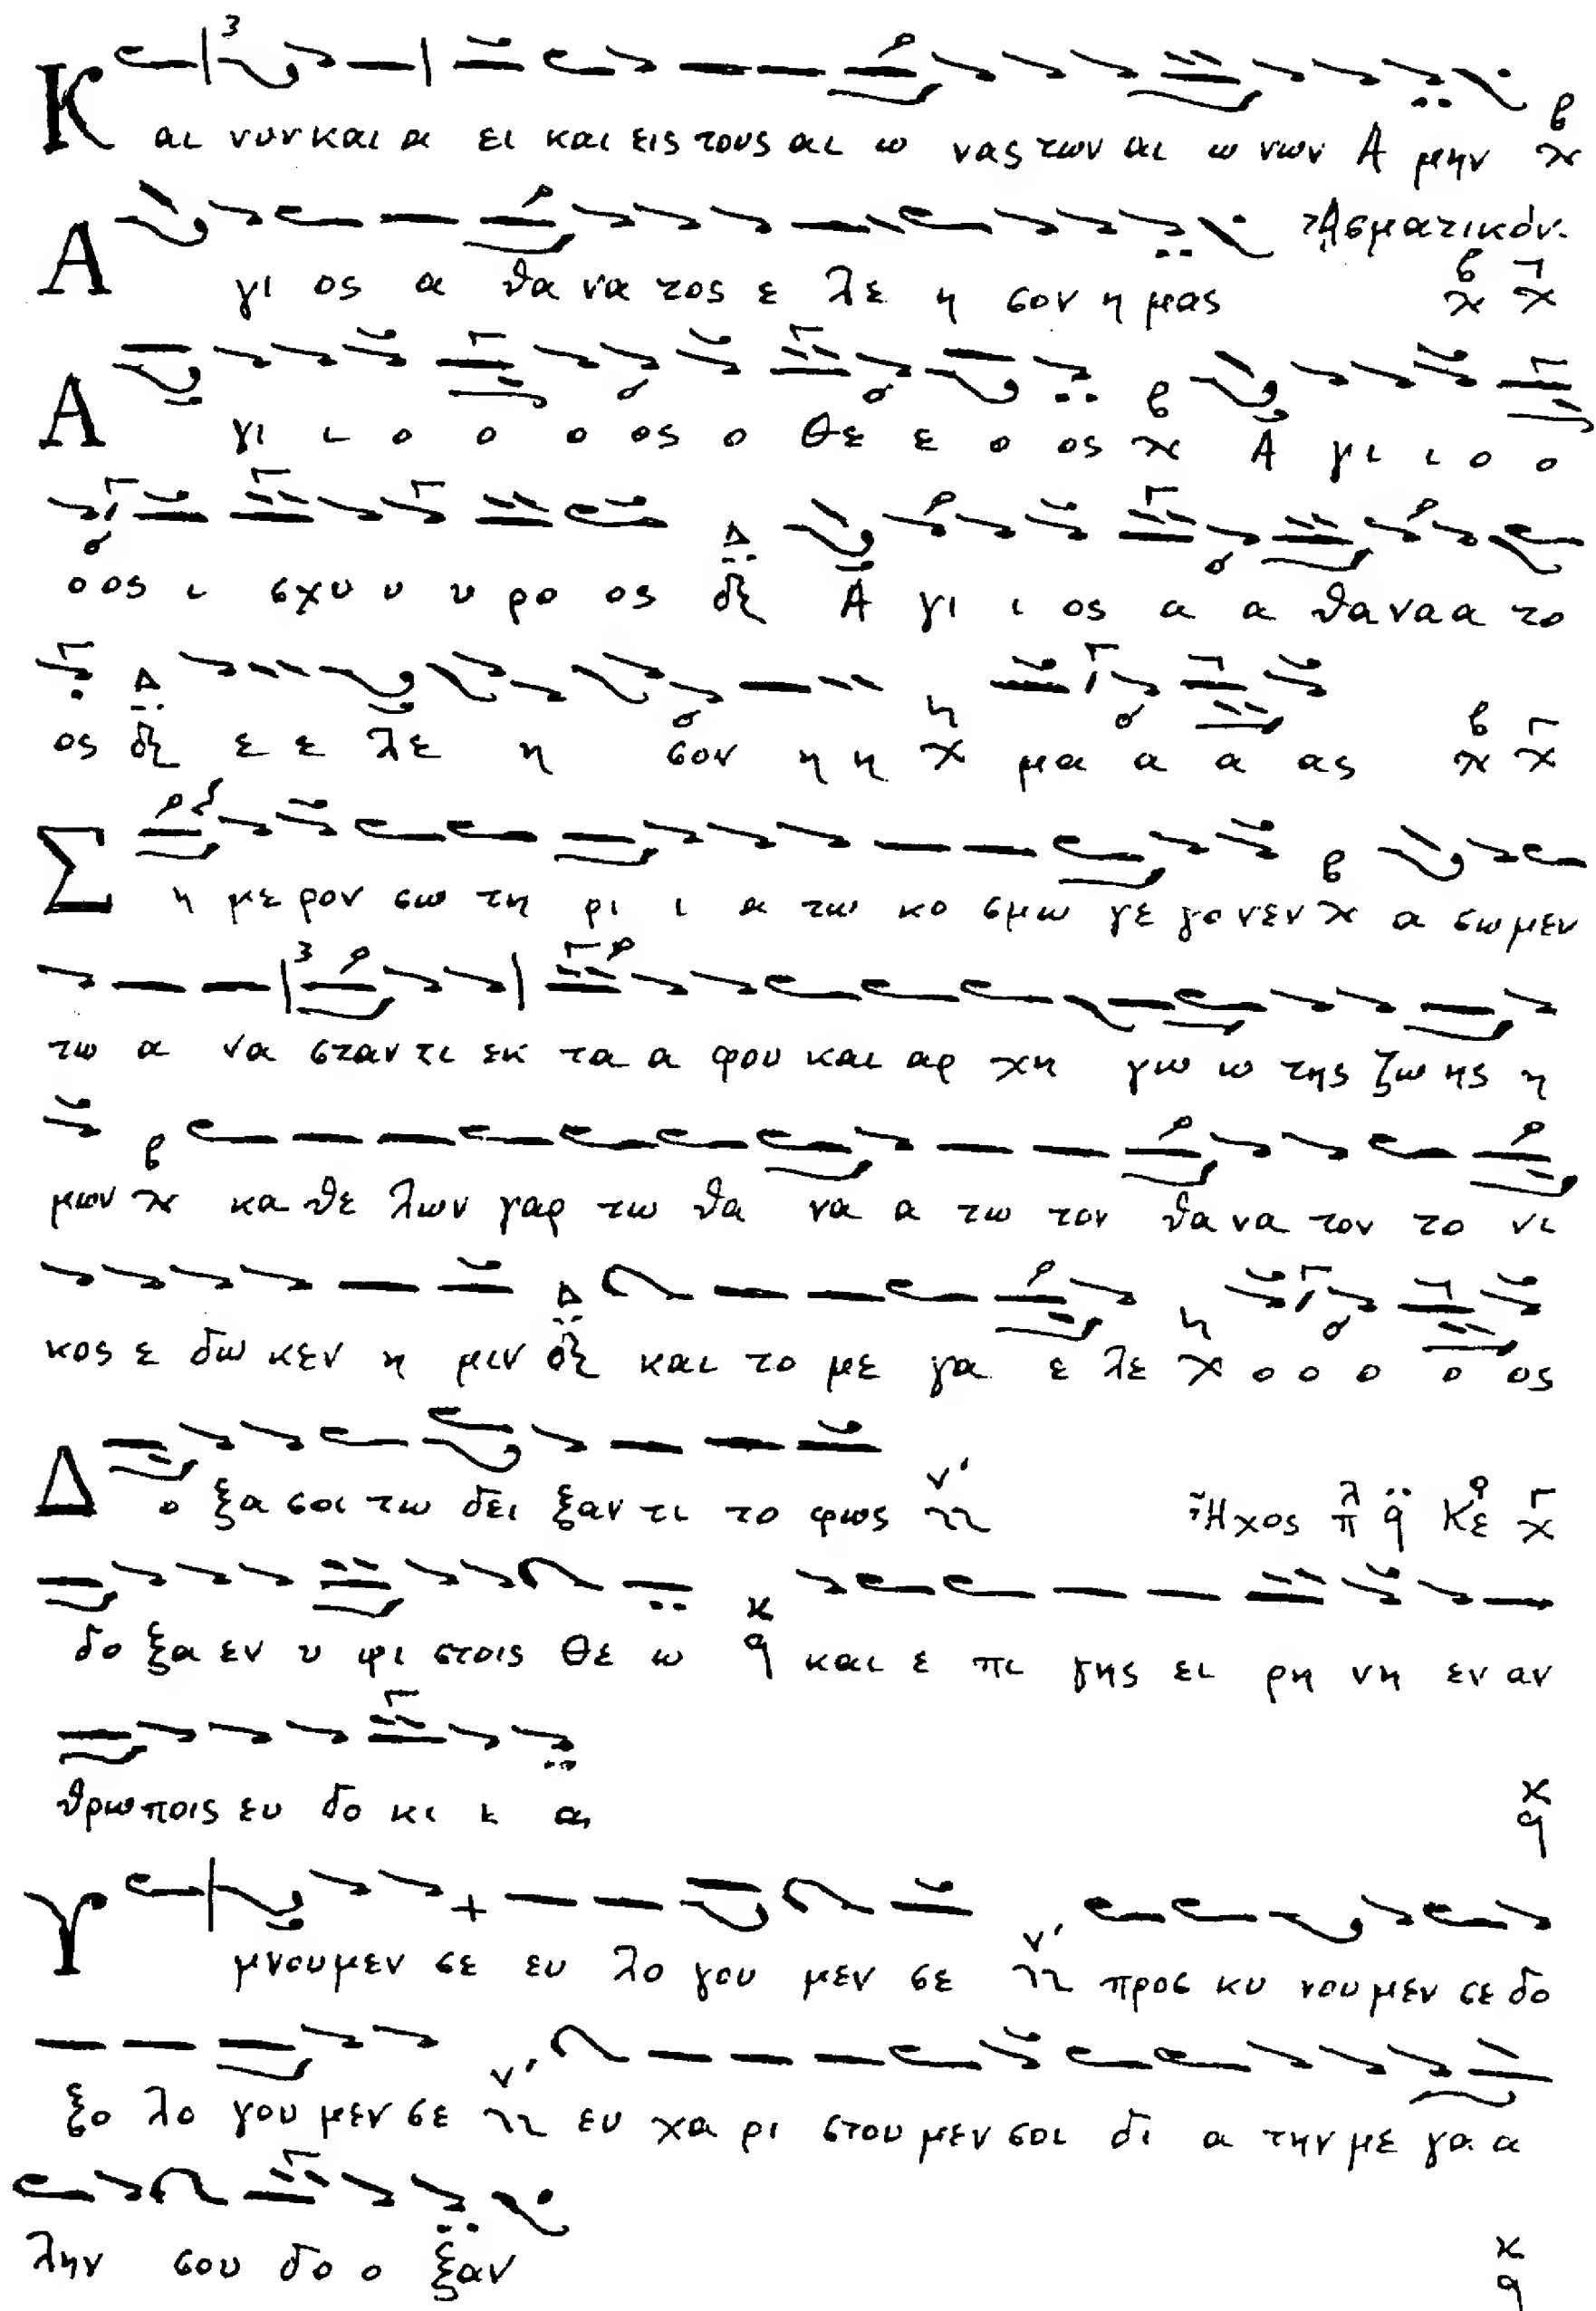 Και νυν και α ει και εις τους αι ω νας των αι ω νων Α μην
Ασματικόν.
Α γι ος α θα να τος ε λε η σον η μας
Α γι ι ο ο ο ος ο Θε ε ο ος Α γι ι ο ο
ο ος ι σχυ υ υ ρο ος Α γι ι ος α α θα να α το
ος ε ε λε η σον η η μα α α ας
Σ η με ρον σω τη ρι ι α τω κο σμω γε γο νεν α σω μεν
τω α να σταν τι εκ τα α φου και αρ χη γω ω της ζω ης η
μων κα θε λων γαρ τω θα να α τω τον θα να τον το νι
κος ε δω κεν η μιν και το με γα ε λε ο ο ο ο ος
Δ ο ξα σοι τω δει ξαν τι το φως Ήχος λ π q Κε
δο ξα εν υ ψι στοις Θε ω και ε πι γης ει ρη νη εν αν
θρω ποις ευ δο κι ι α
Υ μνου μεν σε ευ λο γου μεν σε προσ κυ νου μεν σε δο
ξο λο γου μεν σε ευ χα ρι στου μεν σοι δι α την με γα α
λην σου δο ο ξαν